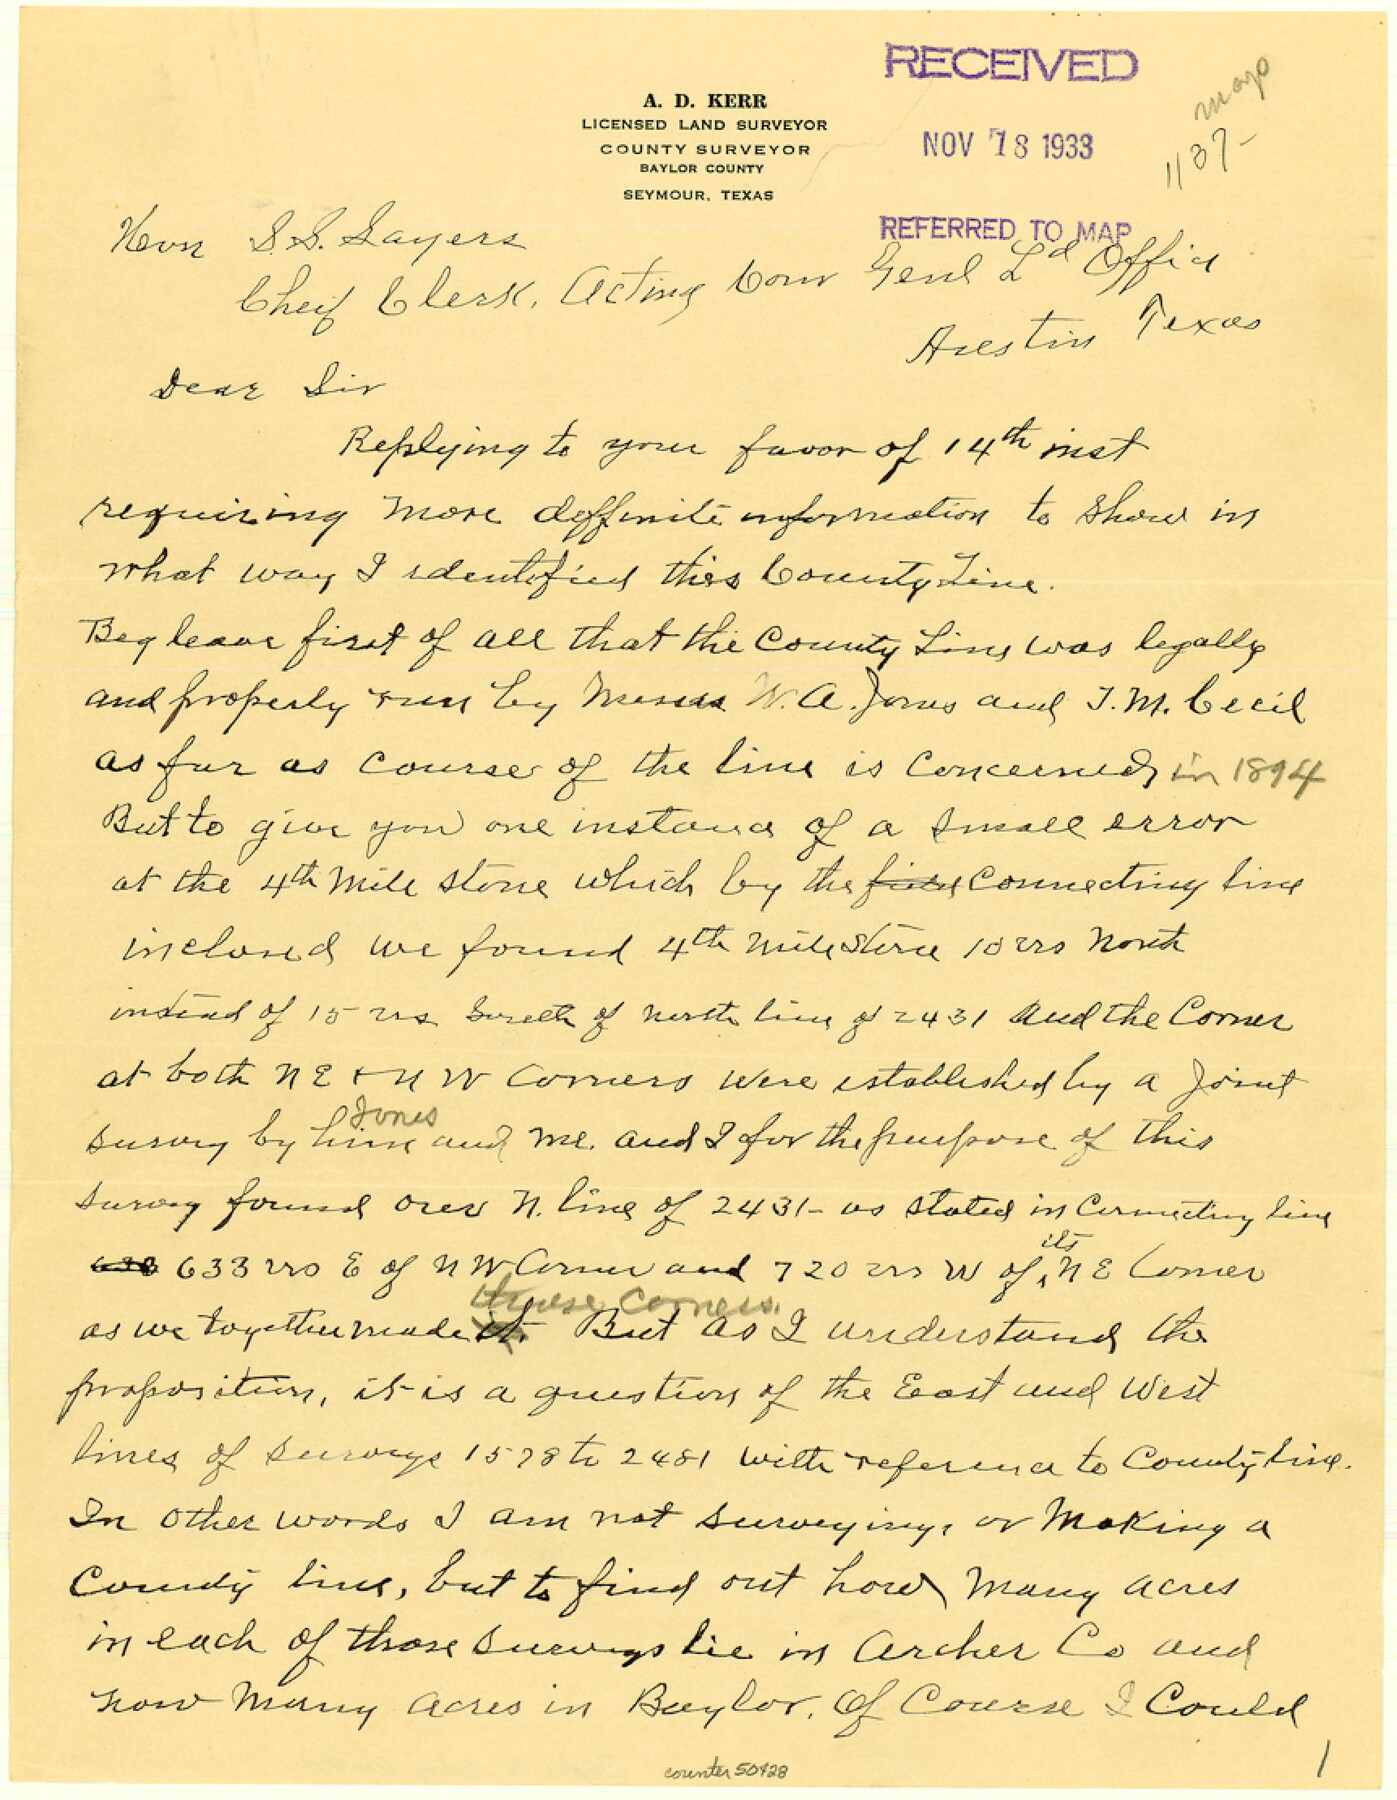 RECEIVED
NOV 18 1933
REFERRED TO MAP
1137- map
A. D. KERR
LICENSED LAND SURVEYOR
COUNTY SURVEYOR
BAYLOR COUNTY
SEYMOUR, TEXAS
Honr S. S. Sayers
Cheif Clerk, Acting Com Genl Ld Office
Austin Texas
Dear Sir
Replying to your favor of 14th inst
requiring more deffinite information to show in
what way I identified this County Line.
Beg leave first of all that the County Line was legally
and properly run by Messrs W. A. Jones and T. M. Cecil
as far as course of the line is concerned, in 1894
But to give you one instance of a small error
at the 4th Mile stone which by the Connecting line
inclosed we found 4th Mile stone 10 vrs North
instead of 15 vrs South of North line of 2431 and the Corner
at both N E & N W Corners were established by a Joint
survey by him Jones and me. and I for the purpose of this
survey found over N. line of 2431- as stated in Connecting line
638 633 vrs E of N W Corner and 720 vrs W of its N E Corner
as we together made it. these Corners. But as I understand the
proposition, it is a question of the East and West
lines of surveys 1578 to 2481 with reference to County line.
In other words I am not surveying, or Making a
County line, but to find out how many acres
in each of those surveys lie in Archer Co and
how many acres in Baylor. Of Course I Could
counter 50428
1